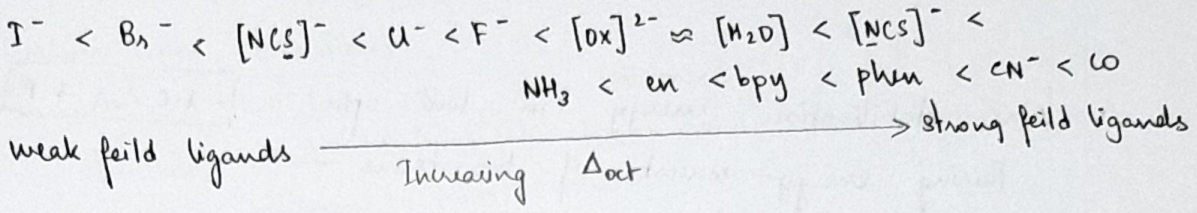 I⁻ < Br⁻ < [NCS̲]⁻ < Cl⁻ < F⁻ < [ox]²⁻ ≈ [H₂O] < [N̲CS]⁻ <
NH₃ < en < bpy < phen < CN⁻ < CO
weak feild ligands → strong feild ligands
Increasing Δoct